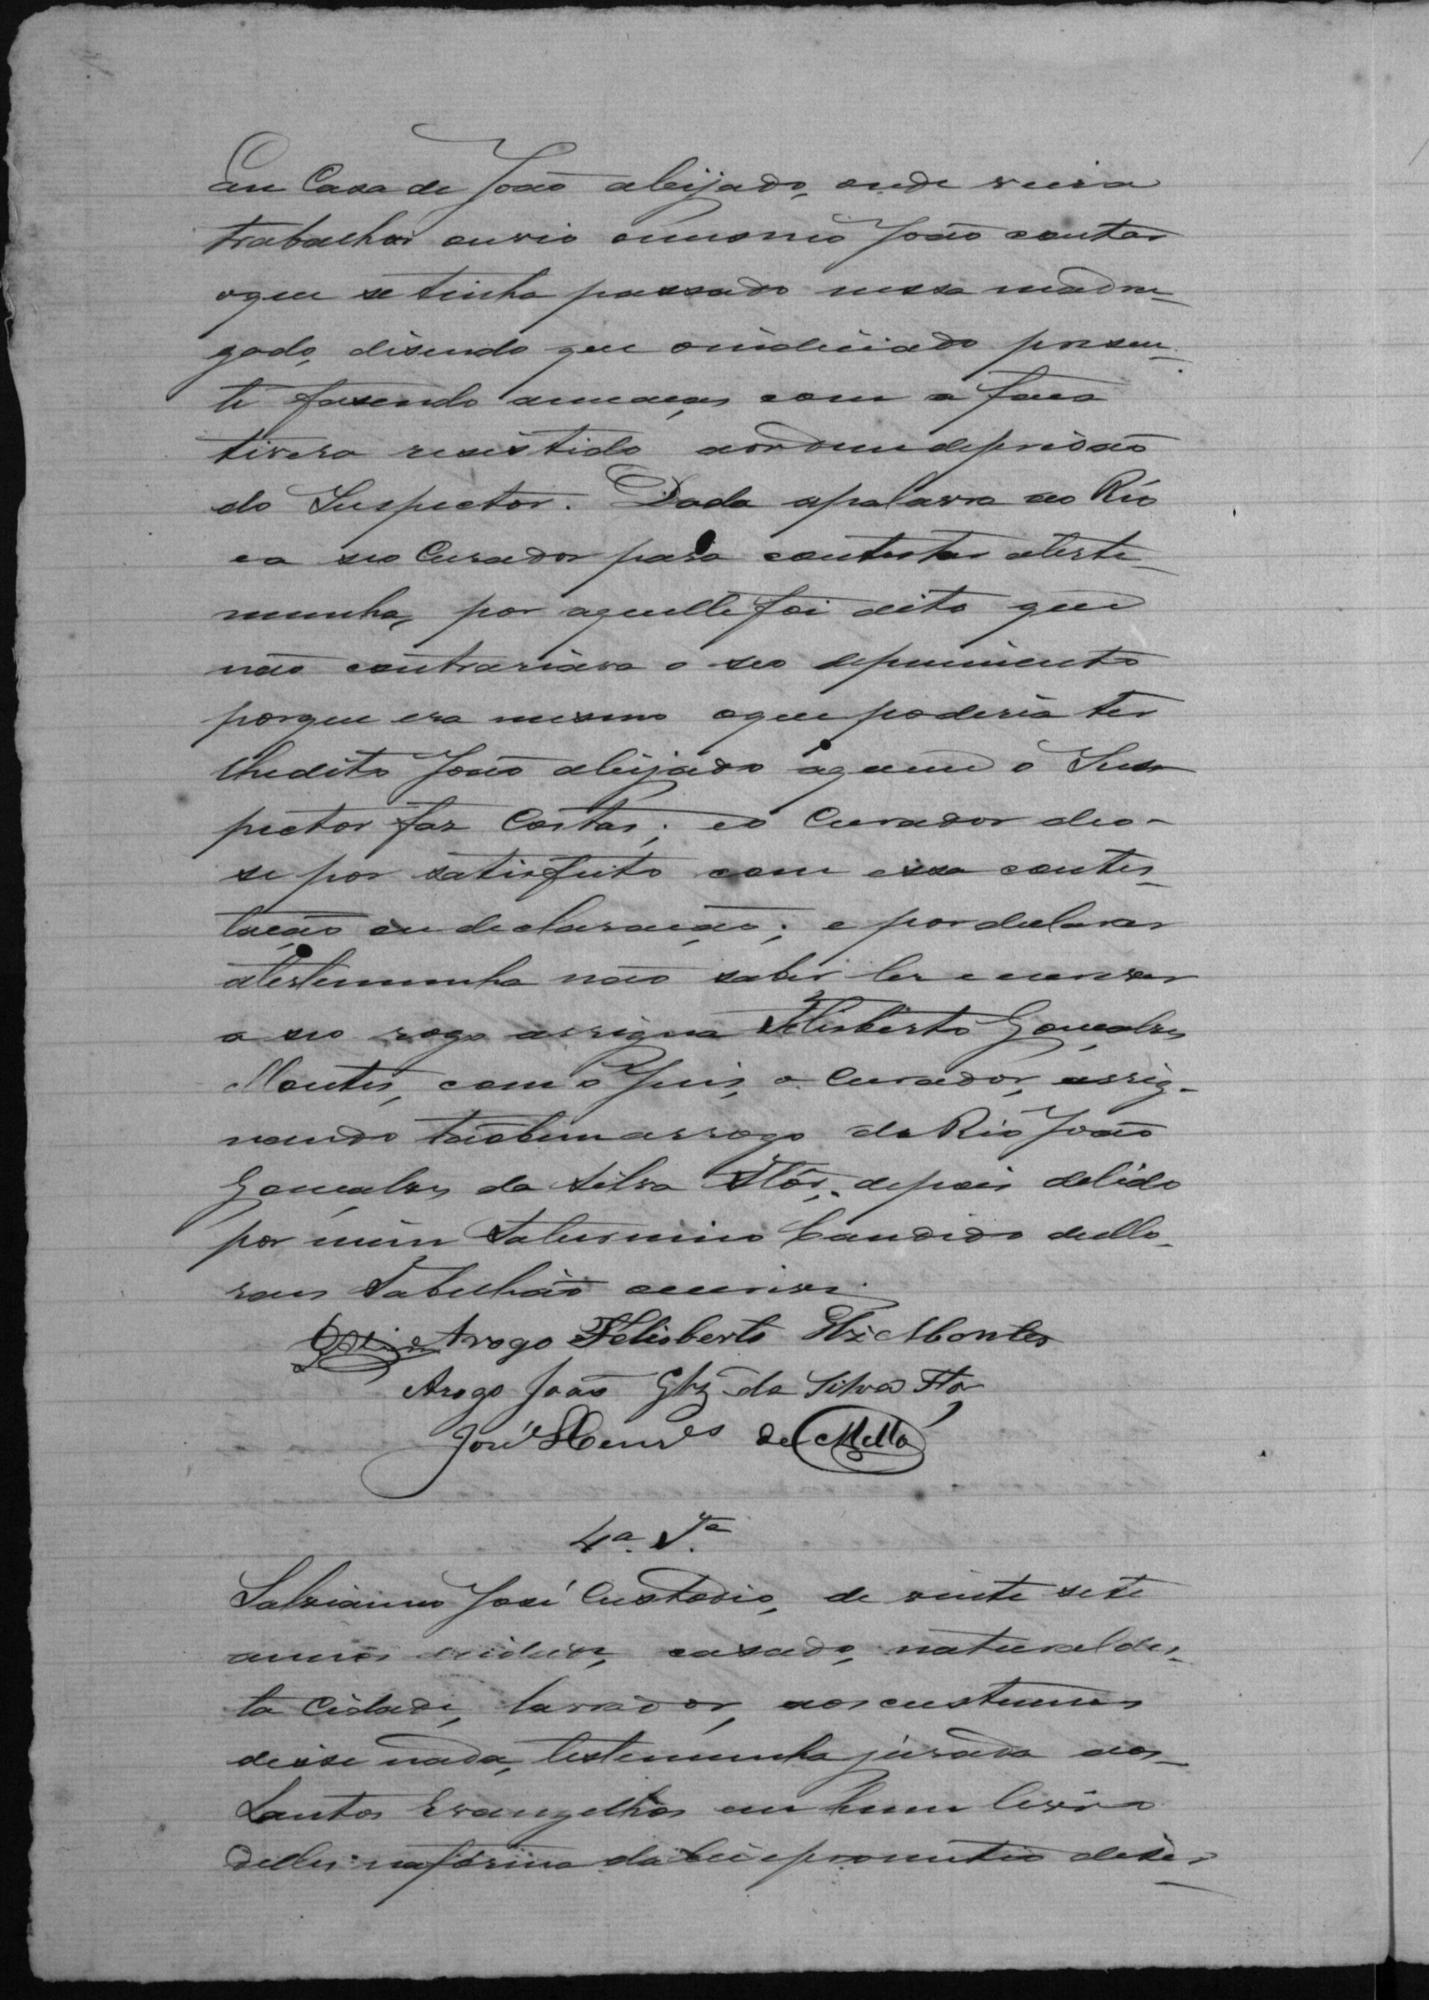 em Casa de João aleijado, onde viera
trabalhar ouvio omesmo João contar
oque se tinha passado nessa madru-
gada, disendo que oindiciado presen-
te fazendo ameaças com a faca
tivera resistido aordem deprisão
do Inspector. Dada apalavra ao Réo
ea seo Curador para contestar ateste-
munha, por aquelle foi dito que
não contrariava o seo depuimento
porque era mesmo oque poderia ter
lhedito João aleijado aquem o Ins
pector faz Costas; eo Curador deo-
se por satisfeito com essa contes-
tação ou declaração; e pordeclarar
atestemunha não saber ler e escrever
a seo rogo assigna Felisberto Gonçalves
Montes, com o Juis, o Curador, assig-
nando tãobem arrogo do Réo João
Gonçalves da Silva Flôr, depois delido
por mim Saturnino Candido de Mo-
raes Tabellião escrivi.
Arogo Felisberto Glz Montes
Arogo João Glz da Silva Flor
José Henres de Mello
4a. Ta.
Salviano José Custodio, de vinte sete
annos casado, natural des-
ta Cidade, lavrador, aos custumes
disse nada, testemunha jurada aos
Santos Evangelhos em hum livro
delles naforma da Lei eprometteo diser